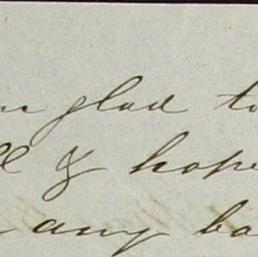 glad to
& hope
any ba